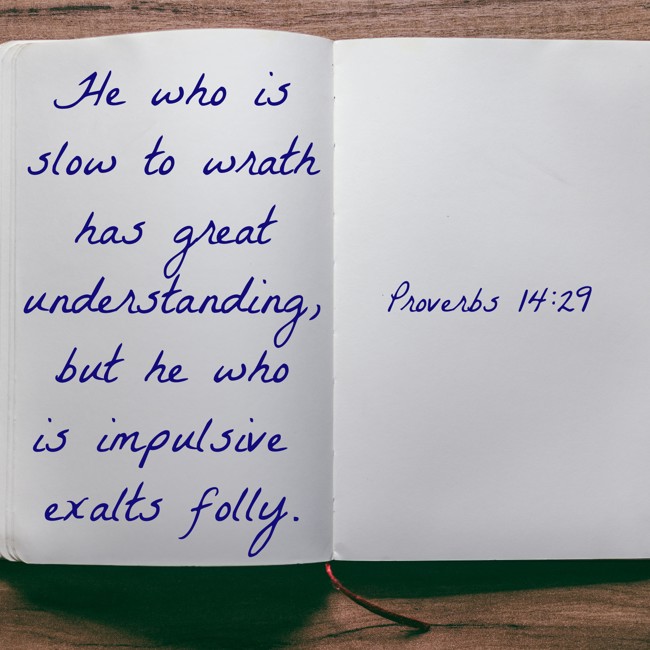 He who is
slow to wrath
has great
understanding,
but he who
is impulsive
exalts folly.
Proverbs 14:29